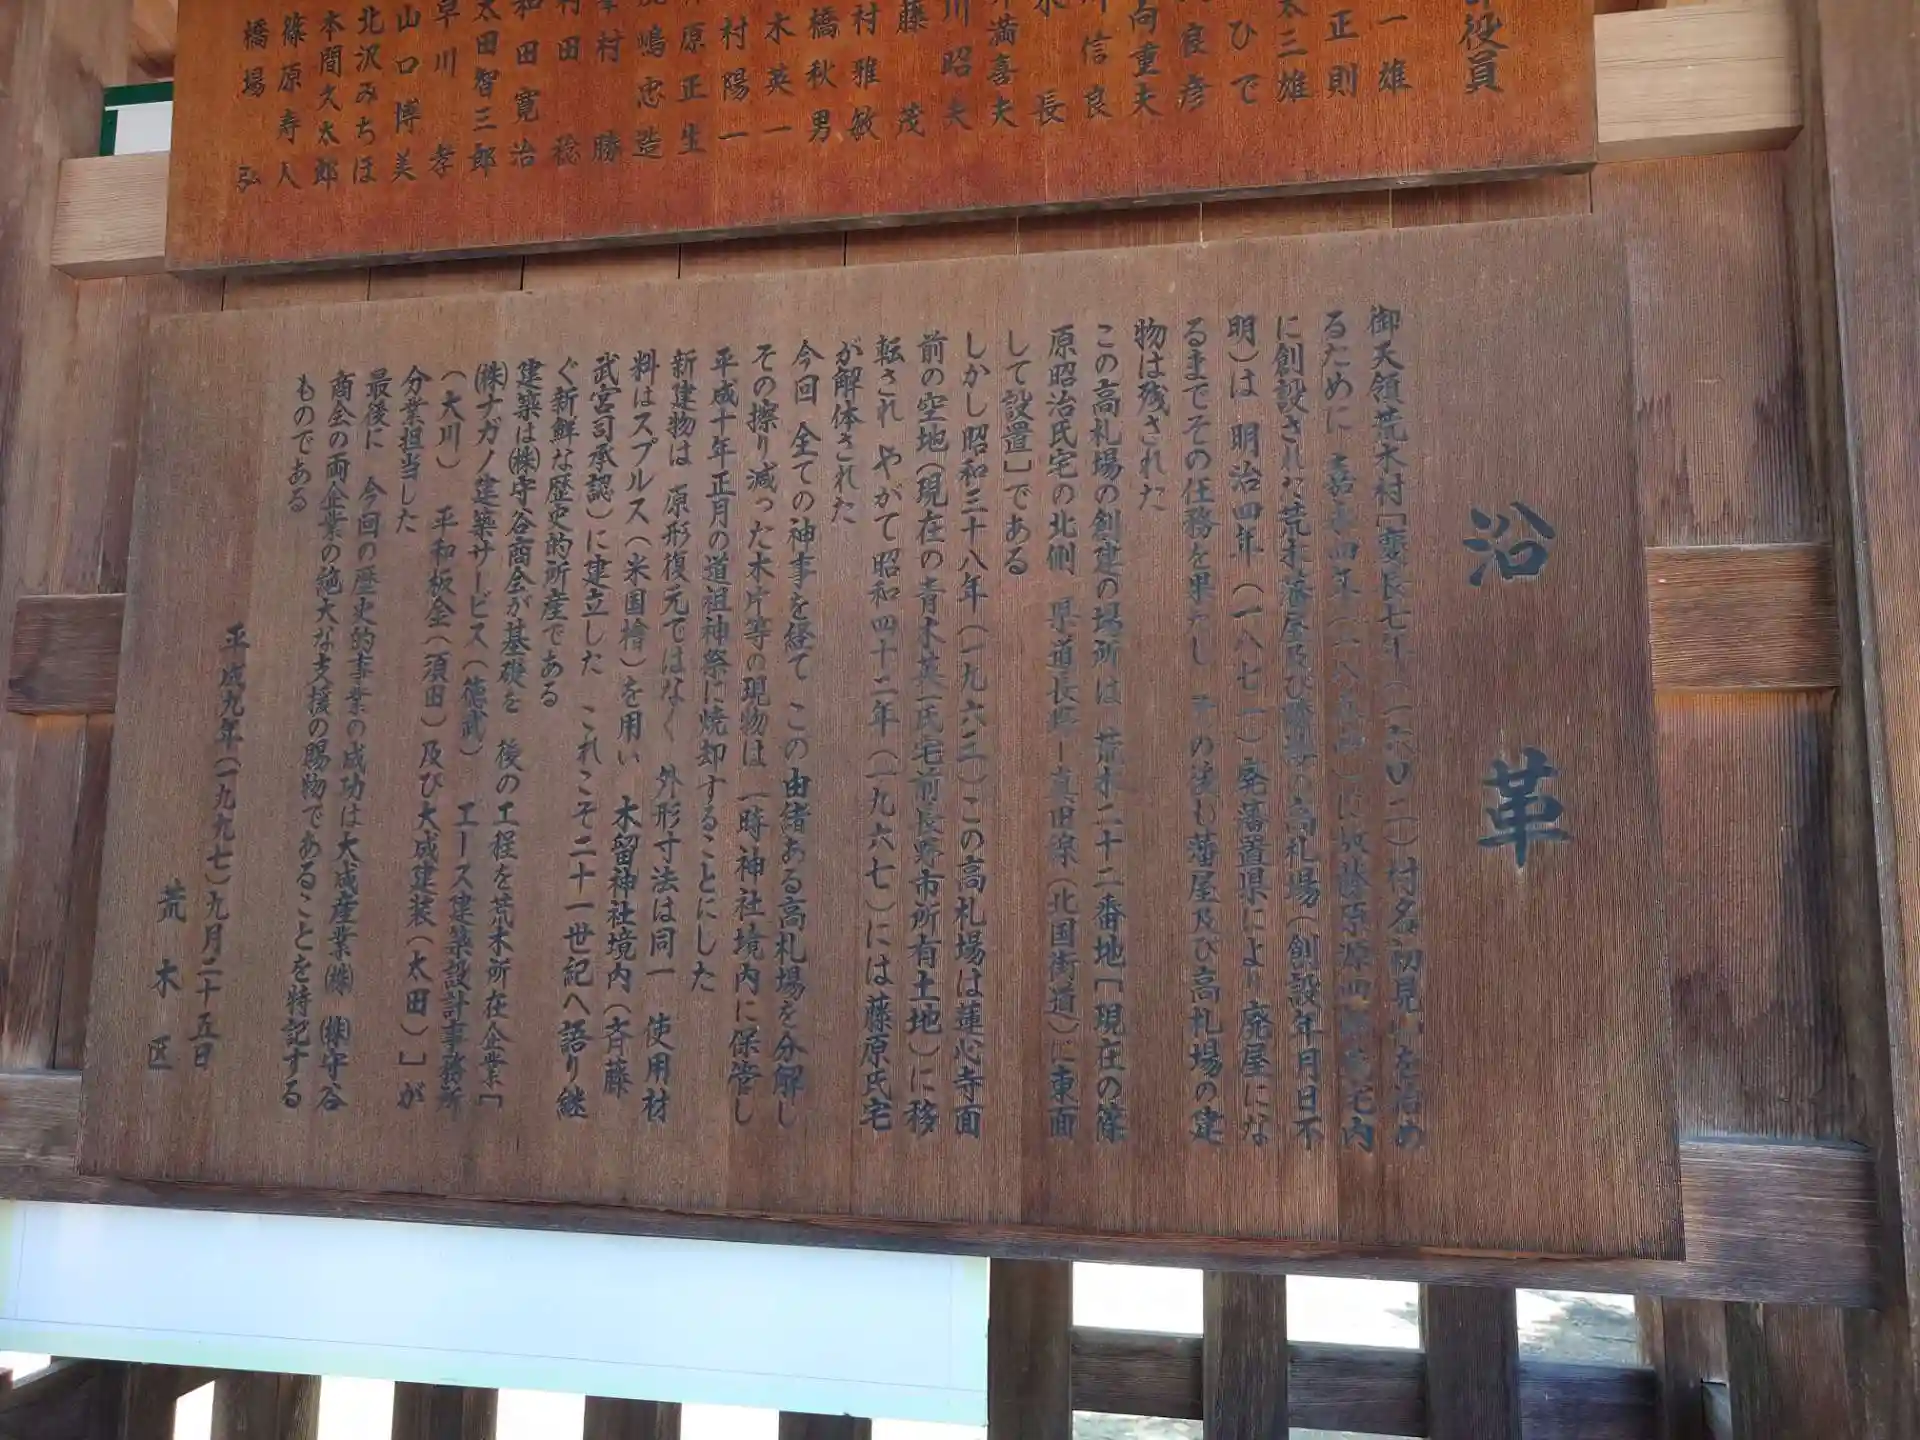 役員
一雄
正則
ひで
太三雄
良彦
向重夫
信良
長
満喜夫
川昭夫
藤茂
村雅敏
橋秋男
木英一
村陽一
原正生
嶋忠造
村勝
村田稔
和田寛治
太田智三郎
早川孝
山口博美
北沢みちほ
本間久太郎
篠原寿人
橋場弘
沿革
御天領荒木村[慶長七年(一六〇二)村名初見]を治め
るために 嘉永四年(一八五四)に故藤原源四郎氏宅内
に創設された荒木藩屋及び勝手の高札場(創設年月日不
明)は 明治四年(一八七一)廃藩置県により廃屋にな
るまでその任務を果たし その後も藩屋及び高札場の建
物は残された
この高札場の創建の場所は 荒木二十二番地[現在の篠
原昭治氏宅の北側 県道長野ー真田線(北国街道)に東面
して設置]である
しかし昭和三十八年(一九六三)この高札場は蓮心寺面
前の空地(現在の青木英一氏宅前長野市所有土地)に移
転され やがて昭和四十二年(一九六七)には藤原氏宅
が解体された
今回 全ての神事を経て この由緒ある高札場を分解し
その擦り減った木片等の現物は 一時神社境内に保管し
平成十年正月の道祖神祭に焼却することにした
新建物は 原形復元ではなく 外形寸法は同一 使用材
料はスプルス(米国檜)を用い 木留神社境内(斉藤
武宮司承認)に建立した これこそ二十一世記へ語り継
ぐ新鮮な歴史的所産である
建築は㈱守谷商会が基礎を 後の工程を荒木所在企業[
㈱ナガノ建築サービス(徳武) エース建築設計事務所
(大川) 平和板金(須田)及び大成建装(太田)]が
分業担当した
最後に 今回の歴史的事業の成功は大成産業㈱ ㈱守谷
商会の両企業の絶大な支援の賜物であることを特記する
ものである
平成九年(一九九七)九月二十五日
荒木区